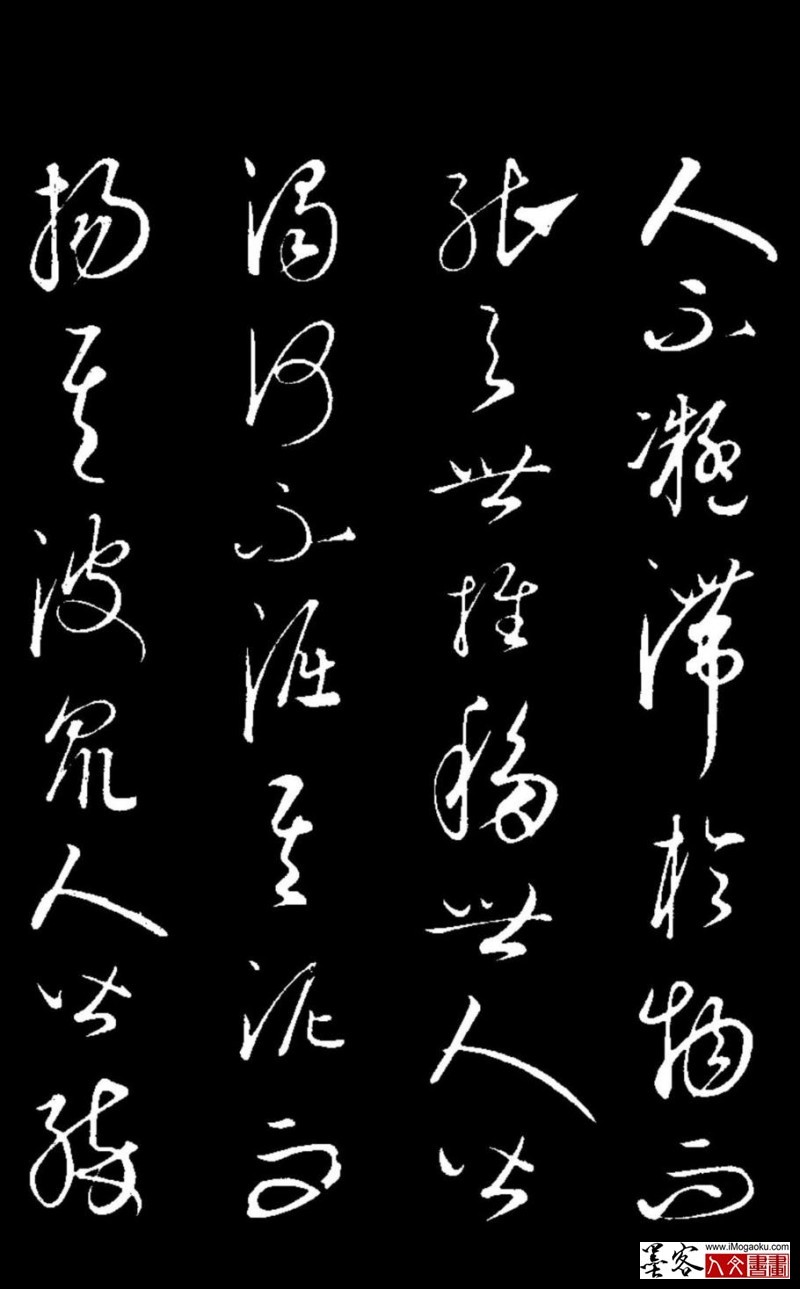 人不凝滯於物而
能与世推移世人皆
濁何不淈其泥而
揚其波眾人皆醉
墨客
www.iMogaoku.com
人文書畫